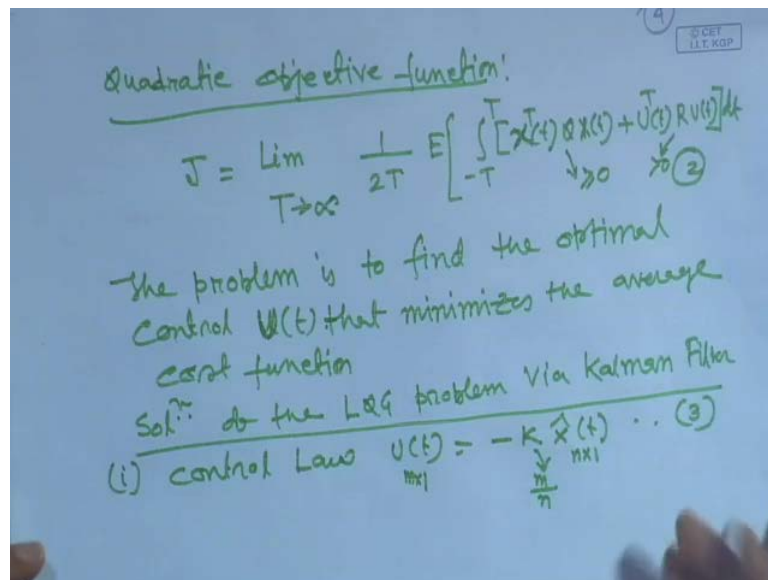 4
© CET
I.I.T. KGP
Quadratic objective function:
J = Lim T→∞ 1/2T E[ ∫_{-T}^{T} [x^T(t) Q x(t) + U^T(t) R U(t)] dt
≥0 >0 (2)
The problem is to find the optimal
control U(t) that minimizes the average
cost function
Sol^n: of the LQG problem via Kalman Filter
(i) control Law U(t) = - K x̂(t) .. (3)
m×1 m/n n×1